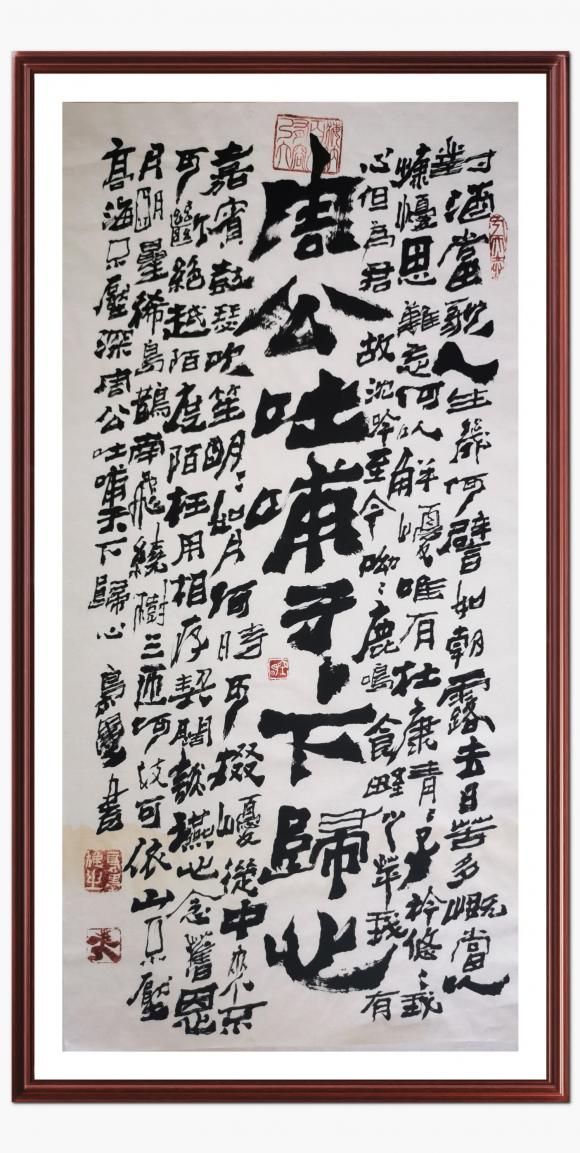 對酒當歌人生幾何譬如朝露去日苦多慨當以
慷憂思難忘何以解憂唯有杜康青〻子衿悠〻我
心但為君故沈吟至今呦〻鹿鳴食野之苹我有
周公吐哺天下歸心
嘉賓鼓瑟吹笙明〻如月何時可掇憂從中來不
可斷絕越陌度陌枉用相存契闊談讌心念舊恩
月明星稀烏鵲南飛繞樹三匝何枝可依山不厭
高海不厭深周公吐哺天下歸心